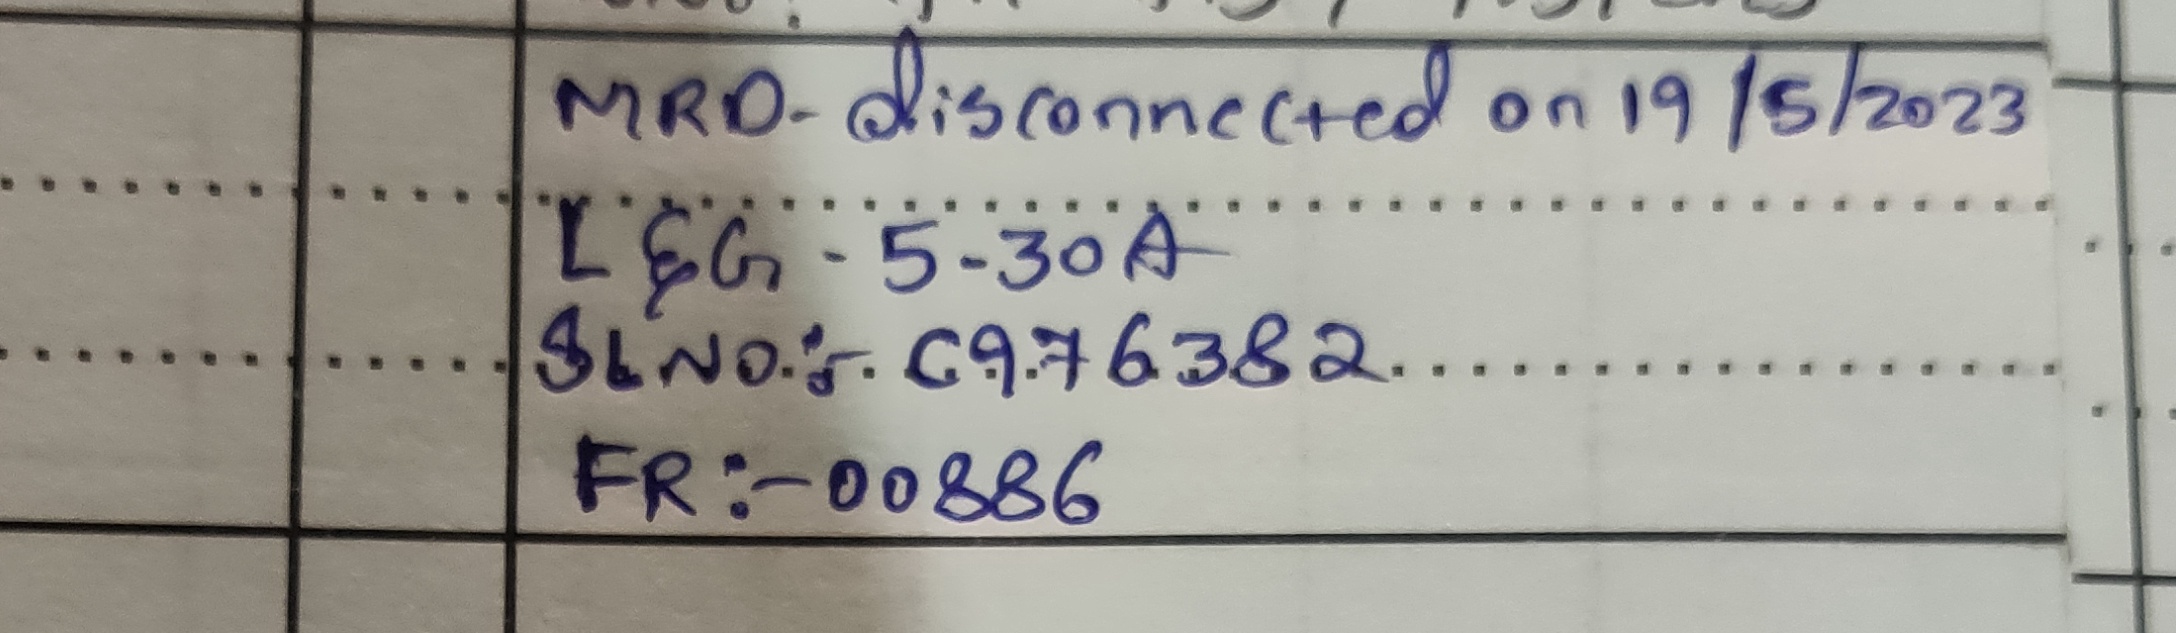 MRD- disconnected on 19/5/2023
L&G - 5-30A
SL NO.:- C976382
FR:-00886